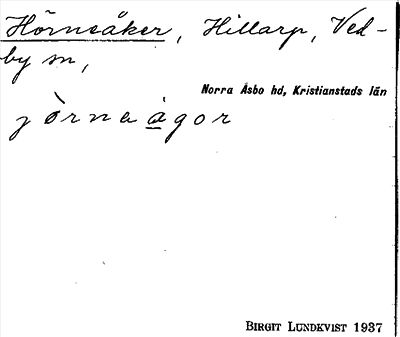 Hörnsåker, Hillarp, Ved-
by sn,
Norra Åsbo hd, Kristianstads län
jö̀rnaågor
BIRGIT LUNDKVIST 1937